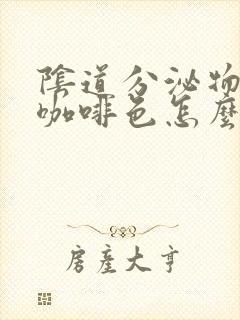 陰道分泌物
咖啡色怎麼
房產大亨